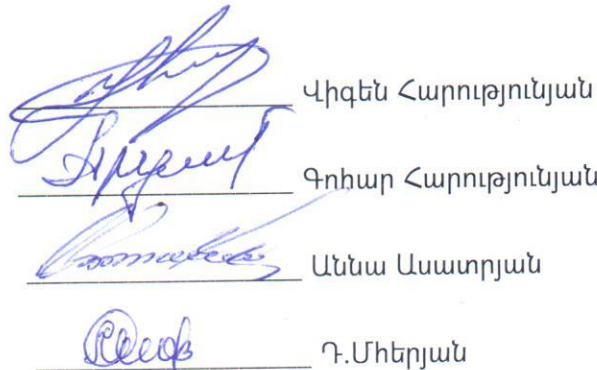 Վիգեն Հարությունյան
Գոհար Հարությունյան
Աննա Ասատրյան
Դ.Մհերյան